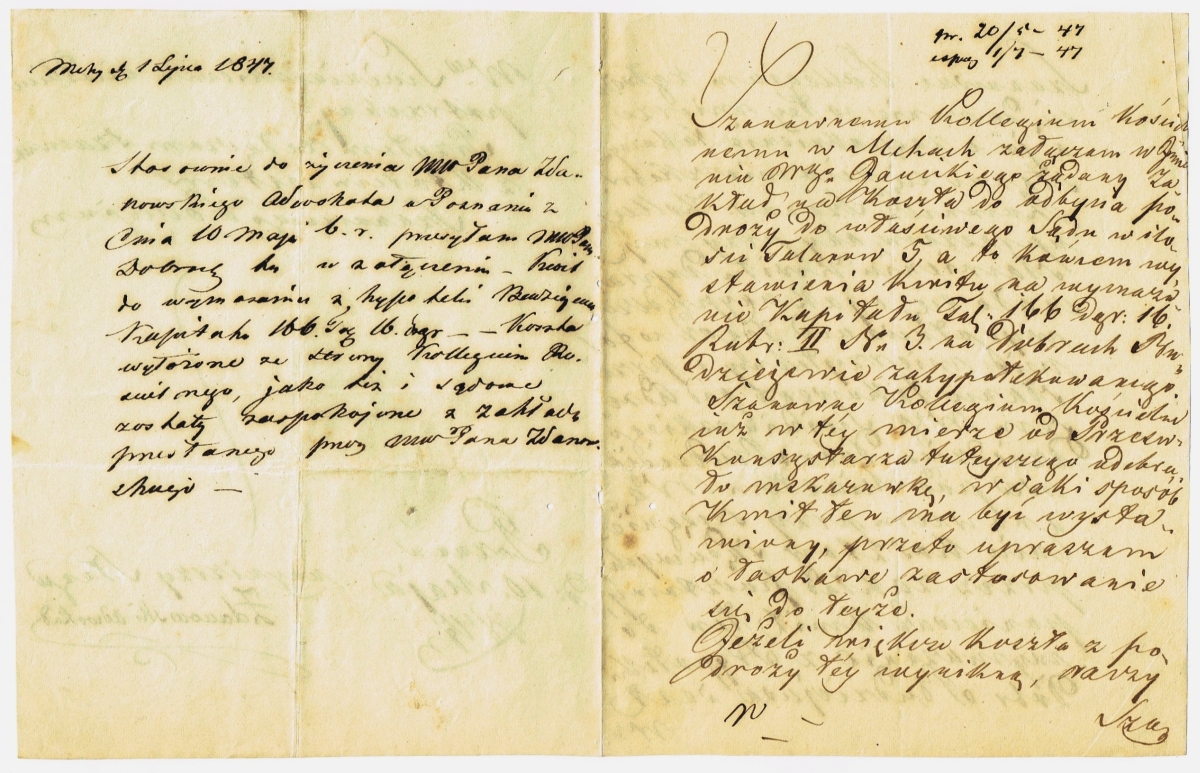 Mchy d. 1 Lipca 1847.
Stosownie do życzenia JWW Pana Zda-
nowskiego Adwokata w Poznaniu z
Dnia 10 Maja b. r. przesyłam
Dobrodz. tu w załączeniu Kwit
do wymazania z hypoteki
Kapitału 166 Tal 16 dgr — Koszta
wyłożone ze strony Kollegium Ko-
ścielnego, jako też i sądowe
zostały zaspokojone z zakładu
przesłanego przez Pana Zdanow-
skiego —
pr. 20/5 – 47
1/7 – 47
Szanownemu Kollegium Kościel
nemu w Mchach załączam w Imie
niu Gaueckiego żądany Za
kład na Koszta do odbycia po-
droży do właściwego Sądu w ilo-
ści Talarow 5, a to końcem wy
stawienia Kwitu na wymaza
nie Kapitału Tal: 166 dgr: 16.
Rubr: III No 3. na Dobrach
dziejewie zahypotekowanego.
Szanowne Kollegium Kościelne
już w tey mierze od Przesw.
Konsystorza tuteyszego odebra
ło wskazówkę, w jaki sposób
Kwit ten ma być wysta-
wiony, przeto upraszam
o łaskawe zastosowanie
się do teyże.
Jeżeli większe koszta z po
droży téy wynikną, raczy
Sza